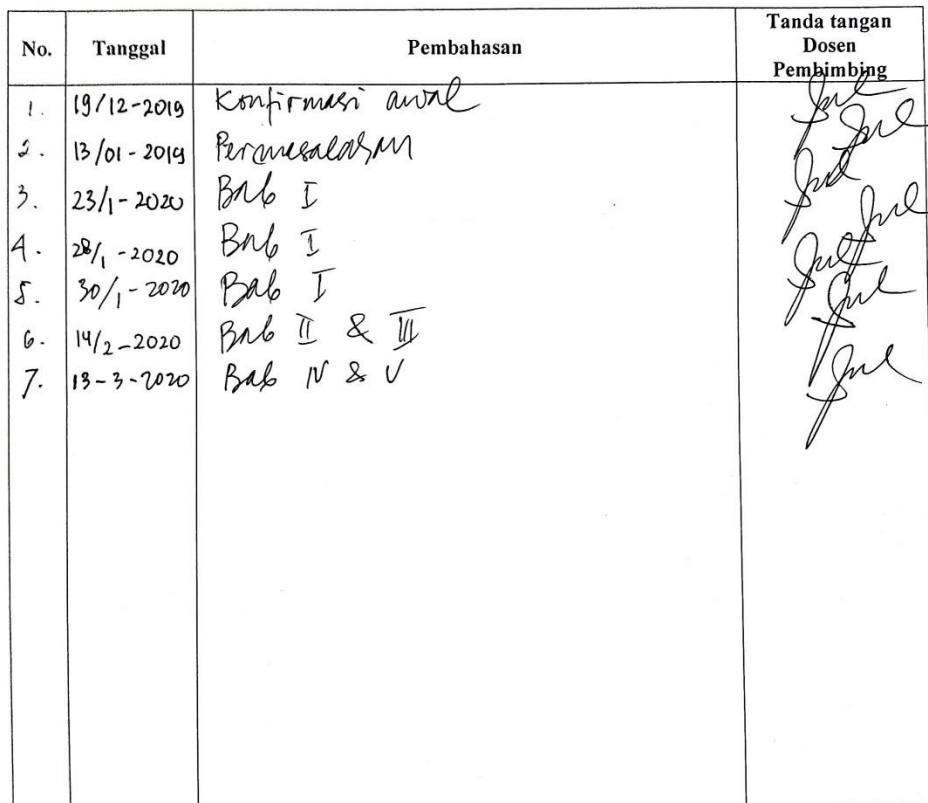 No. Tanggal Pembahasan Tanda tangan Dosen Pembimbing
1. 19/12-2019 Konfirmasi awal
2. 13/01-2019 Permasalahan
3. 23/1-2020 Bab I
4. 28/1-2020 Bab I
5. 30/1-2020 Bab I
6. 14/2-2020 Bab II & III
7. 13-3-2020 Bab IV & V